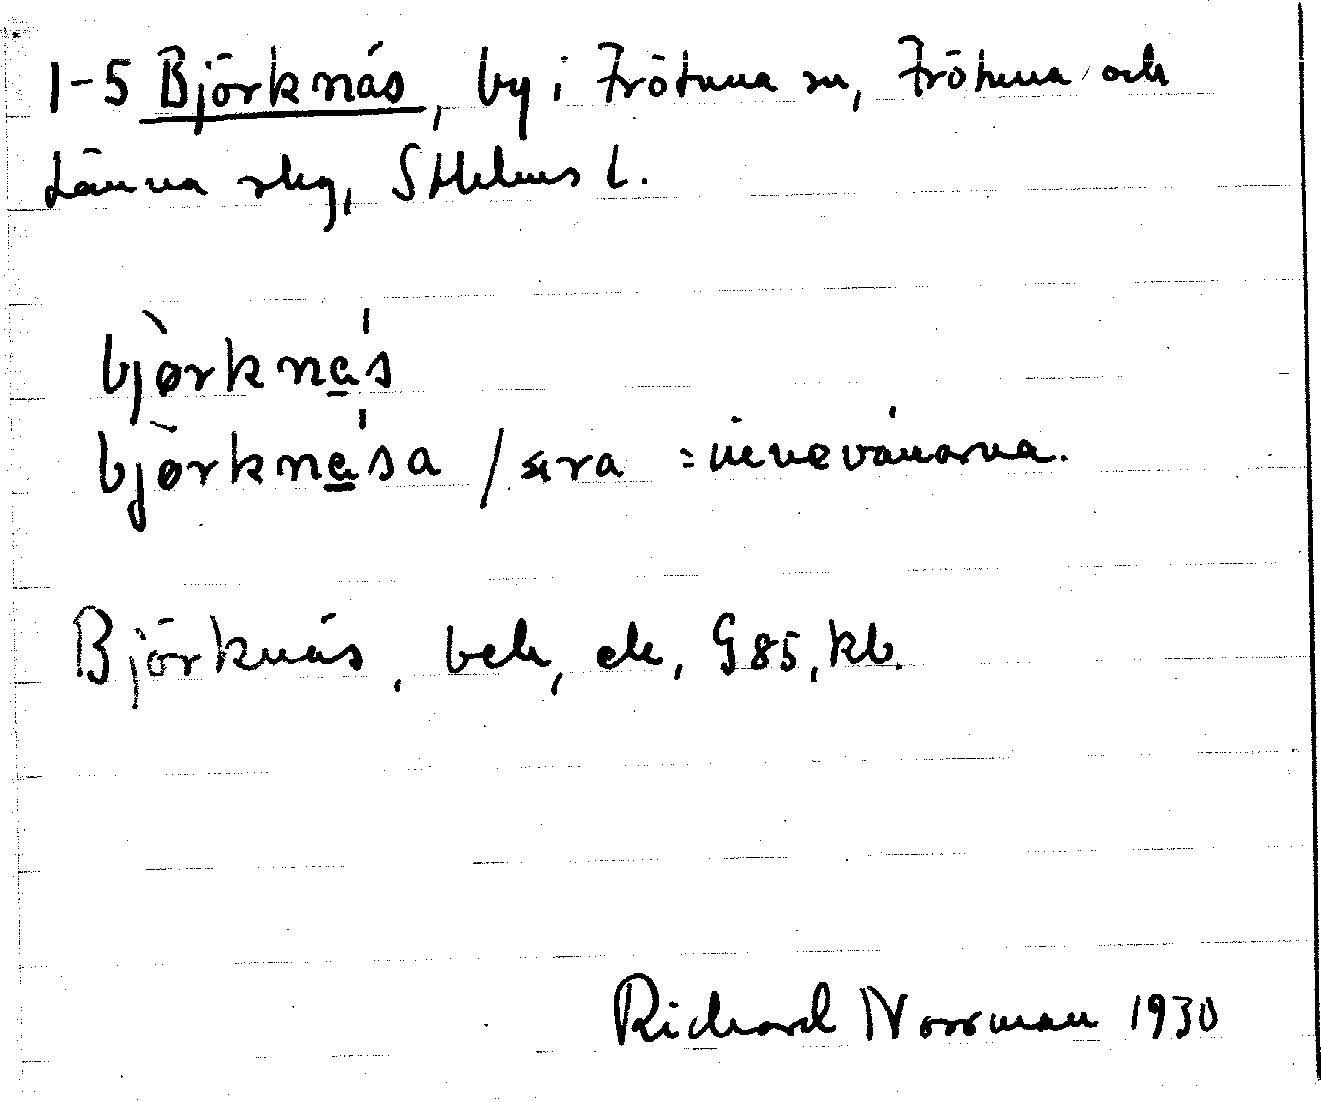 1-5 Björknäs, by i Frötuna sn, Frötuna och
Länna skg, Sthlms l.
bjørknas
bjørknasa / ara = innevånarna.
Björknäs, bek, ek, G 85, kb.
Richard Norrman 1930